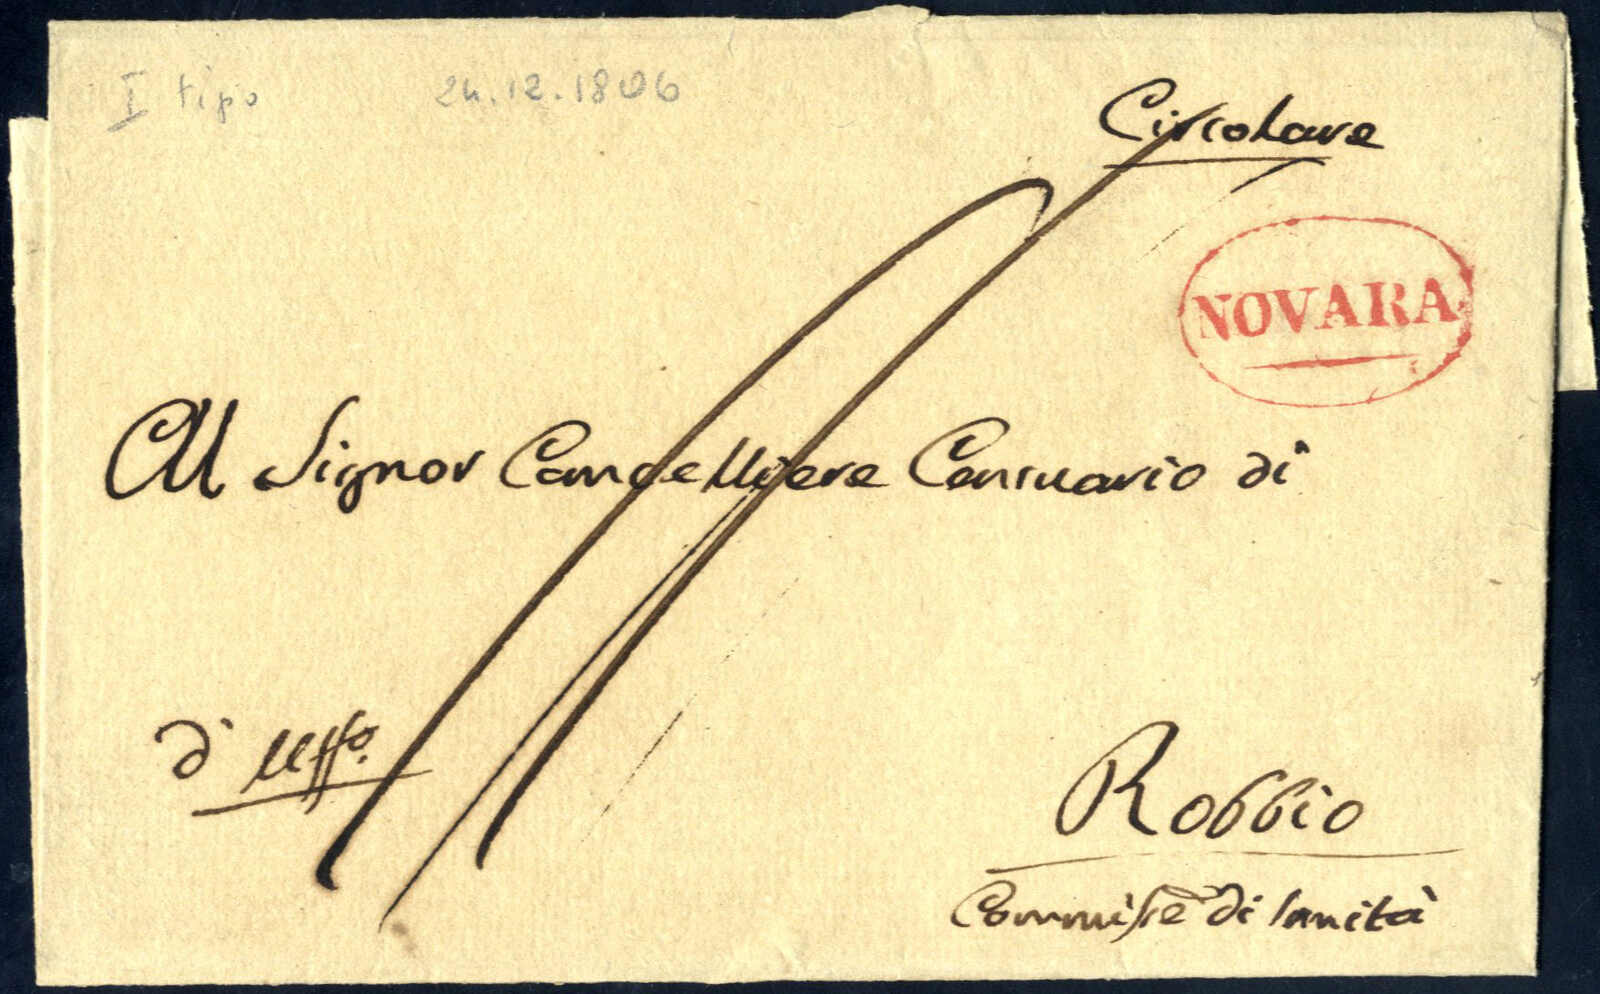 I tipo 24.12.1806
Circolare
NOVARA
Al Signor Cancelliere Censuario di
d' Uffo.
Robbio
Commisne di Sanità